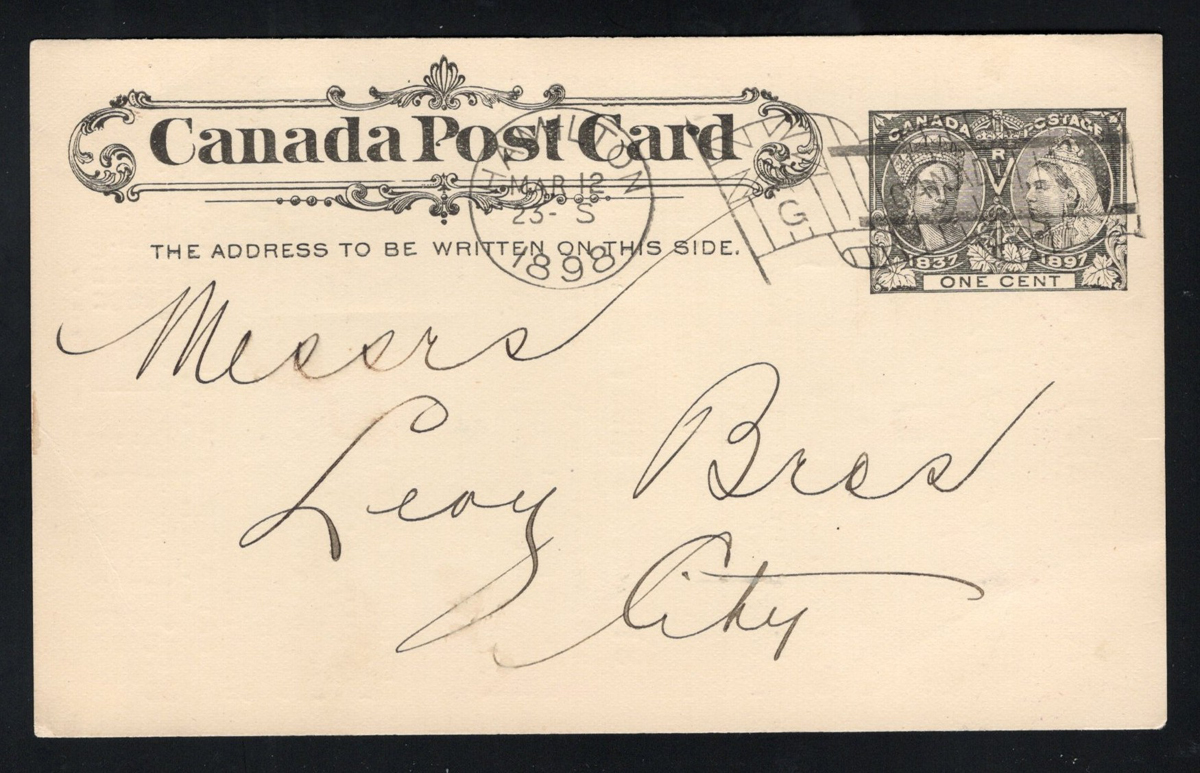 Canada Post Card
THE ADDRESS TO BE WRITTEN ON THIS SIDE.
HAMILTON
MAR 12
23- S
1898
G
CANADA POSTAGE
VRI
1837 1897
ONE CENT
Messrs
Levy Bros
City